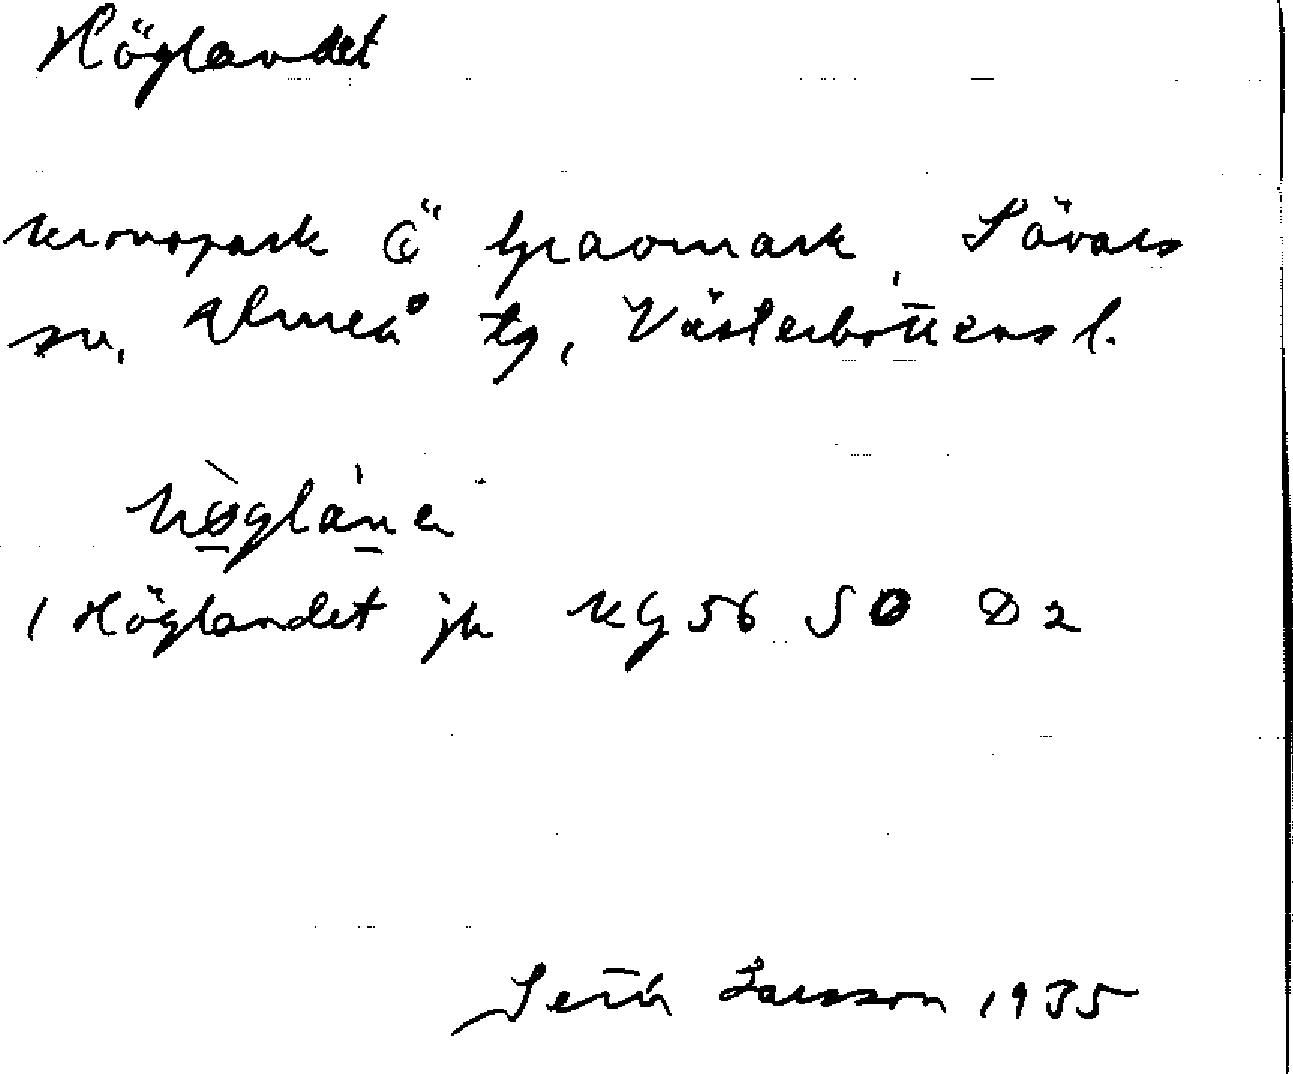 Höglandet
kronopark Ö Gravmark, Sävars
sn, Umeå tg, Västerbottens l.
høglánɛ
( Höglandet jk KG 56 SO D 2
Seth Larsson 1935